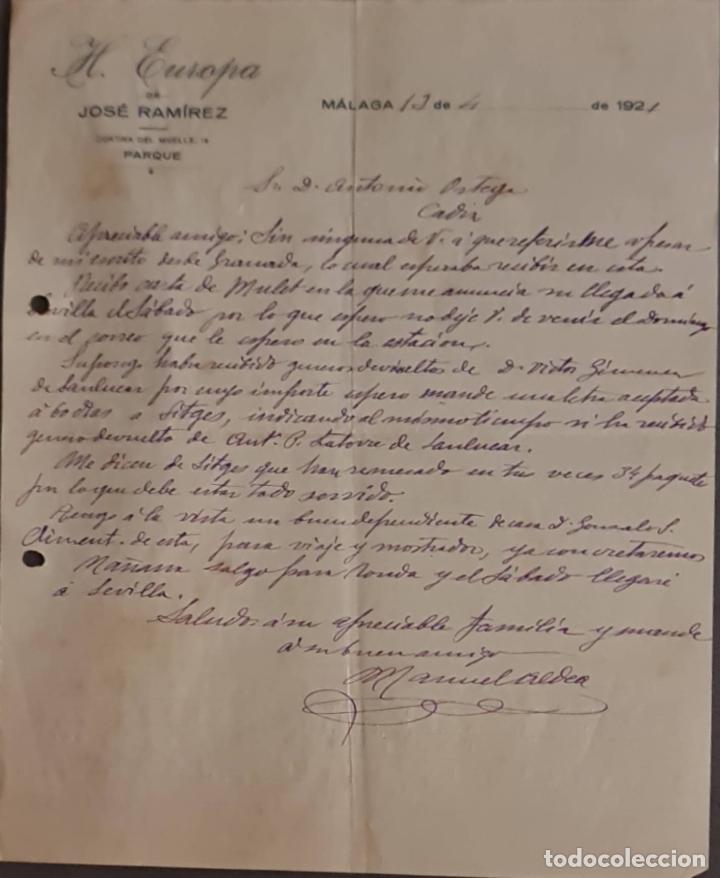 H. Europa
DE
JOSÉ RAMÍREZ
CORTINA DEL MUELLE, 14
PARQUE
MÁLAGA 13 de 4 de 1921
Sr. D. Antonio Ortega
Cadiz
Apreciable amigo: Sin ninguna de V. á que referirme apesar
de mi escrito desde Granada, lo cual esperaba recibir en esta.
Recibo carta de Mulet en la que me anuncia su llegada á
Sevilla el Sábado por lo que espero no deje V. de venir el Domingo
en el correo que le espero en la estacion,
Supongo habra recibido generos devueltos de D. Victor Gimenez
de Sanlucar por cuyo importe espero mande una letra aceptada
á 60 dias a Sitges, indicando al mismo tiempo si ha recibido
genero devuelto de Ant. P. Latorre de Sanlucar.
Me dicen de Sitges que han remesado en tres veces 34 paquetes
por lo que debe estar todo
Tengo á la vista un buen dependiente de casa D. Gonzalo S.
Climent. de esta, para viaje y mostrador, ya concretaremos
Mañana salgo para Ronda y el Sábado llegaré
á Sevilla.
Saludos á su apreciable familia y mande
á su buen amigo
Manuel Aldea
todocoleccion
todocoleccion.net